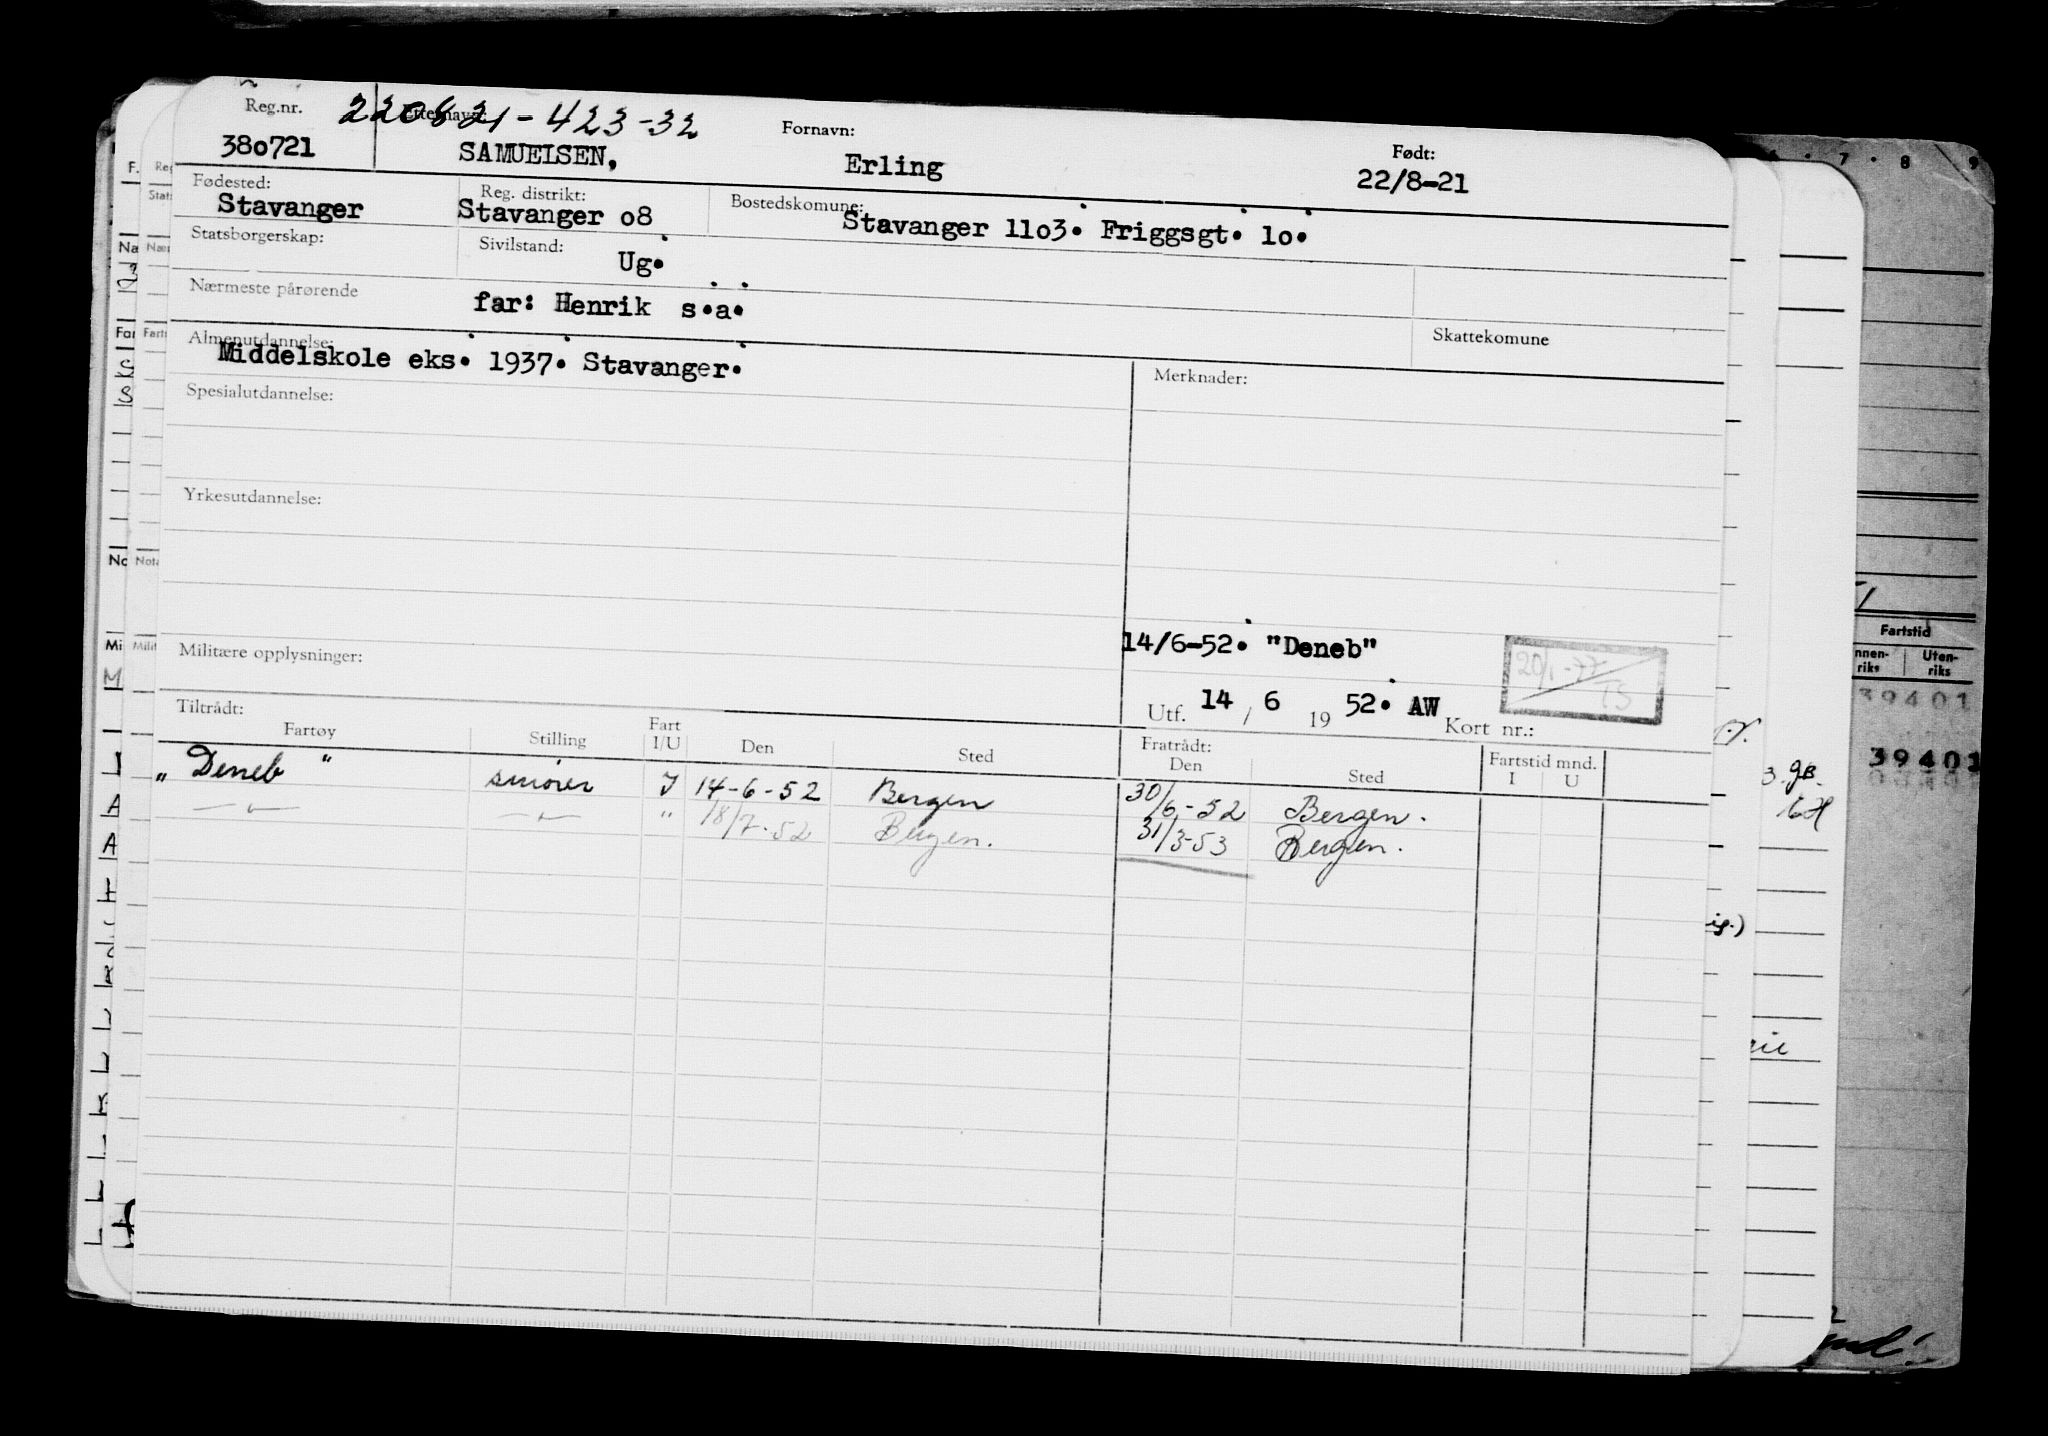 Reg.nr. 220821-423-32 Fornavn: Født:
380721 SAMUELSEN, Erling 22/8-21
Fødested: Reg. distrikt: Bostedskomune:
Stavanger Stavanger o8 Stavanger 11o3. Friggsgt. 1o.
Statsborgerskap: Sivilstand:
Ug.
Nærmeste pårørende far: Henrik s.a.
Skattekomune
Almenutdannelse:
Middelskole eks. 1937. Stavanger.
Merknader:
Spesialutdannelse:
Yrkesutdannelse:
Militære opplysninger:
14/6-52. "Deneb"
20/1-77
TS
Utf. 14 / 6 19 52. AW Kort nr.:
Tiltrådt: Fratrådt: Fartstid mnd.
Fartøy Stilling Fart I/U Den Sted Den Sted I U
„ Deneb " smører I 14-6-52 Bergen 30/6-52 Bergen.
—"— —"— " 18/7-52 Bergen. 31/3-53 Bergen.
7 8 9
Fartstid
Uten-
riks
39401
39401